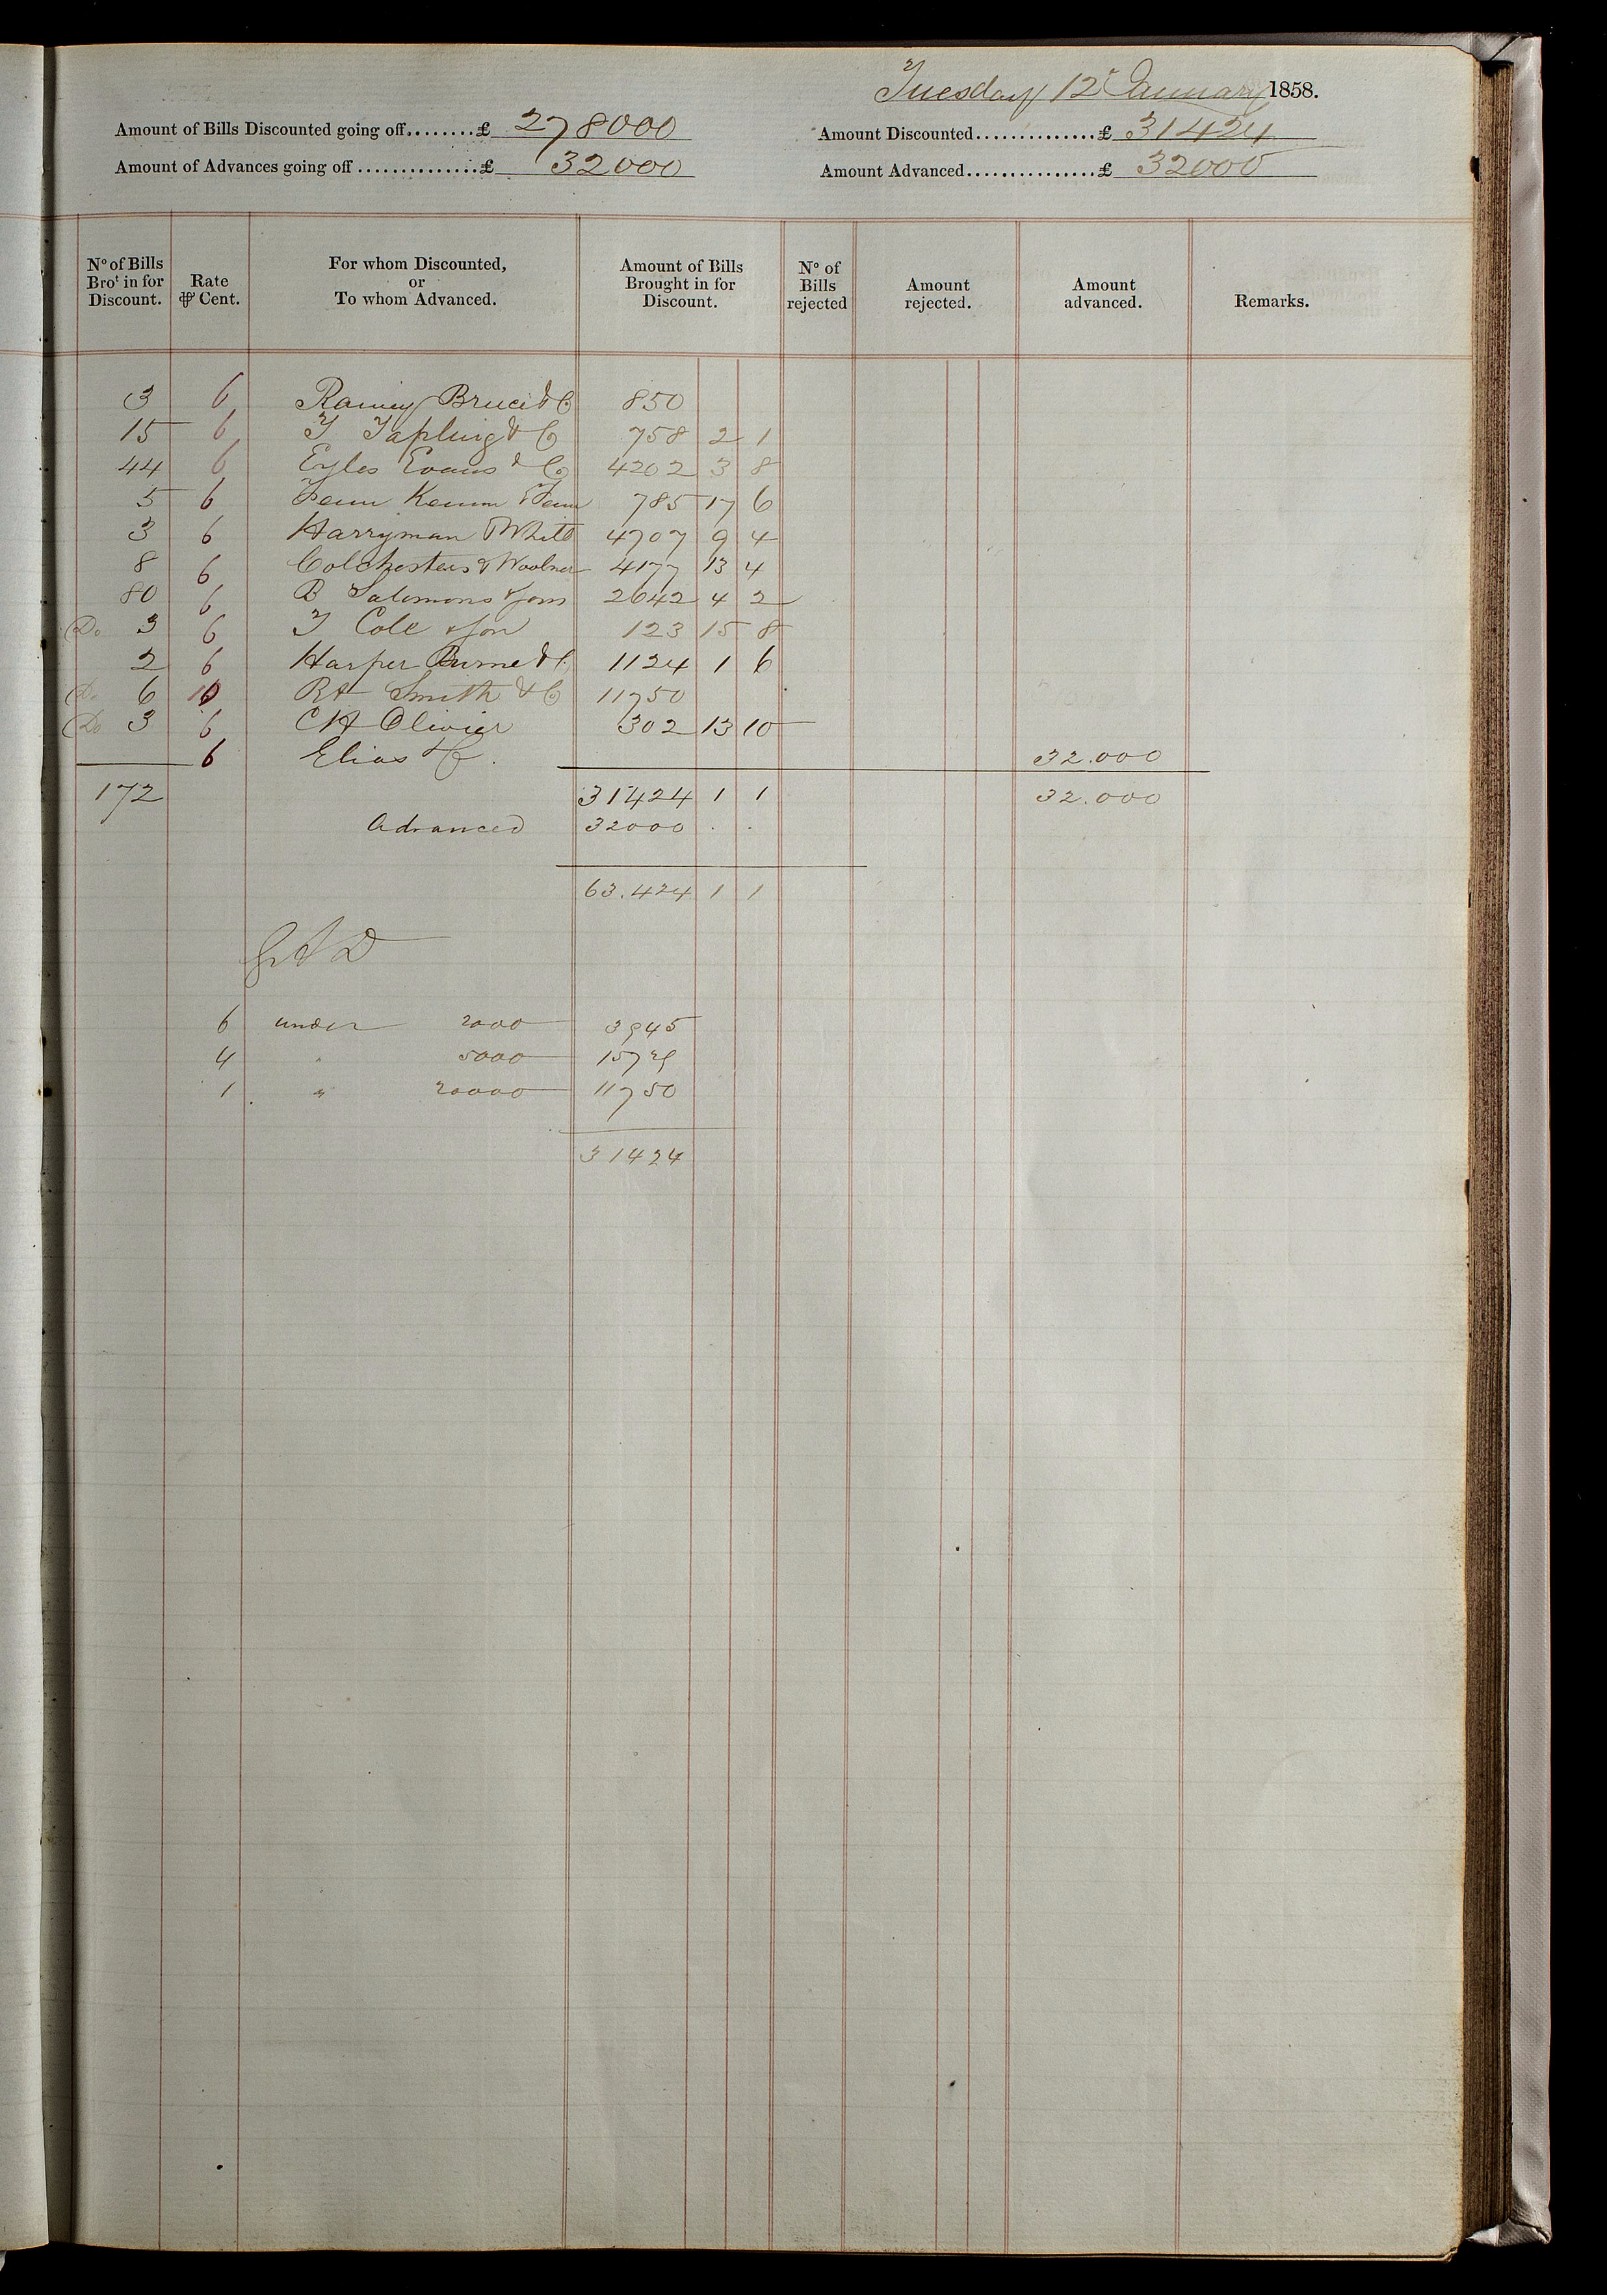 Tuesday 12th January 1858.
Amount of Bills Discounted going off........£ 278000 Amount Discounted..............£ 31424
Amount of Advances going off ..............£ 32000 Amount Advanced...............£ 32000
No of Bills Brot in for Discount. Rate ⅌ Cent. For whom Discounted, or To whom Advanced. Amount of Bills Brought in for Discount. No of Bills rejected Amount rejected. Amount advanced. Remarks.
3 6 Rainey Bruce & Co 850
15 6 T Tapling & Co 758 2 1
44 6 Eyles Evans & Co 4202 3 8
5 6 Fenn Kemm & Fenn 785 17 6
3 6 Harryman White 4707 9 4
8 6 Colchesters & Woolner 4177 13 4
80 6 B Salomons & Sons 2642 4 2
Do 3 6 T Cole & Son 123 15 8
2 6 Harper Burne & C 1124 1 6
Do 6 10 Smith & Co 11750
Do 3 6 C H Olivier 302 13 10
6 Elias & Co. 32.000
172 31424 1 1 32.000
Advanced 32000 . .
63.424 1 1
6 under 2000 3945
4 " 5000 15729
1 " 20000 11750
31424